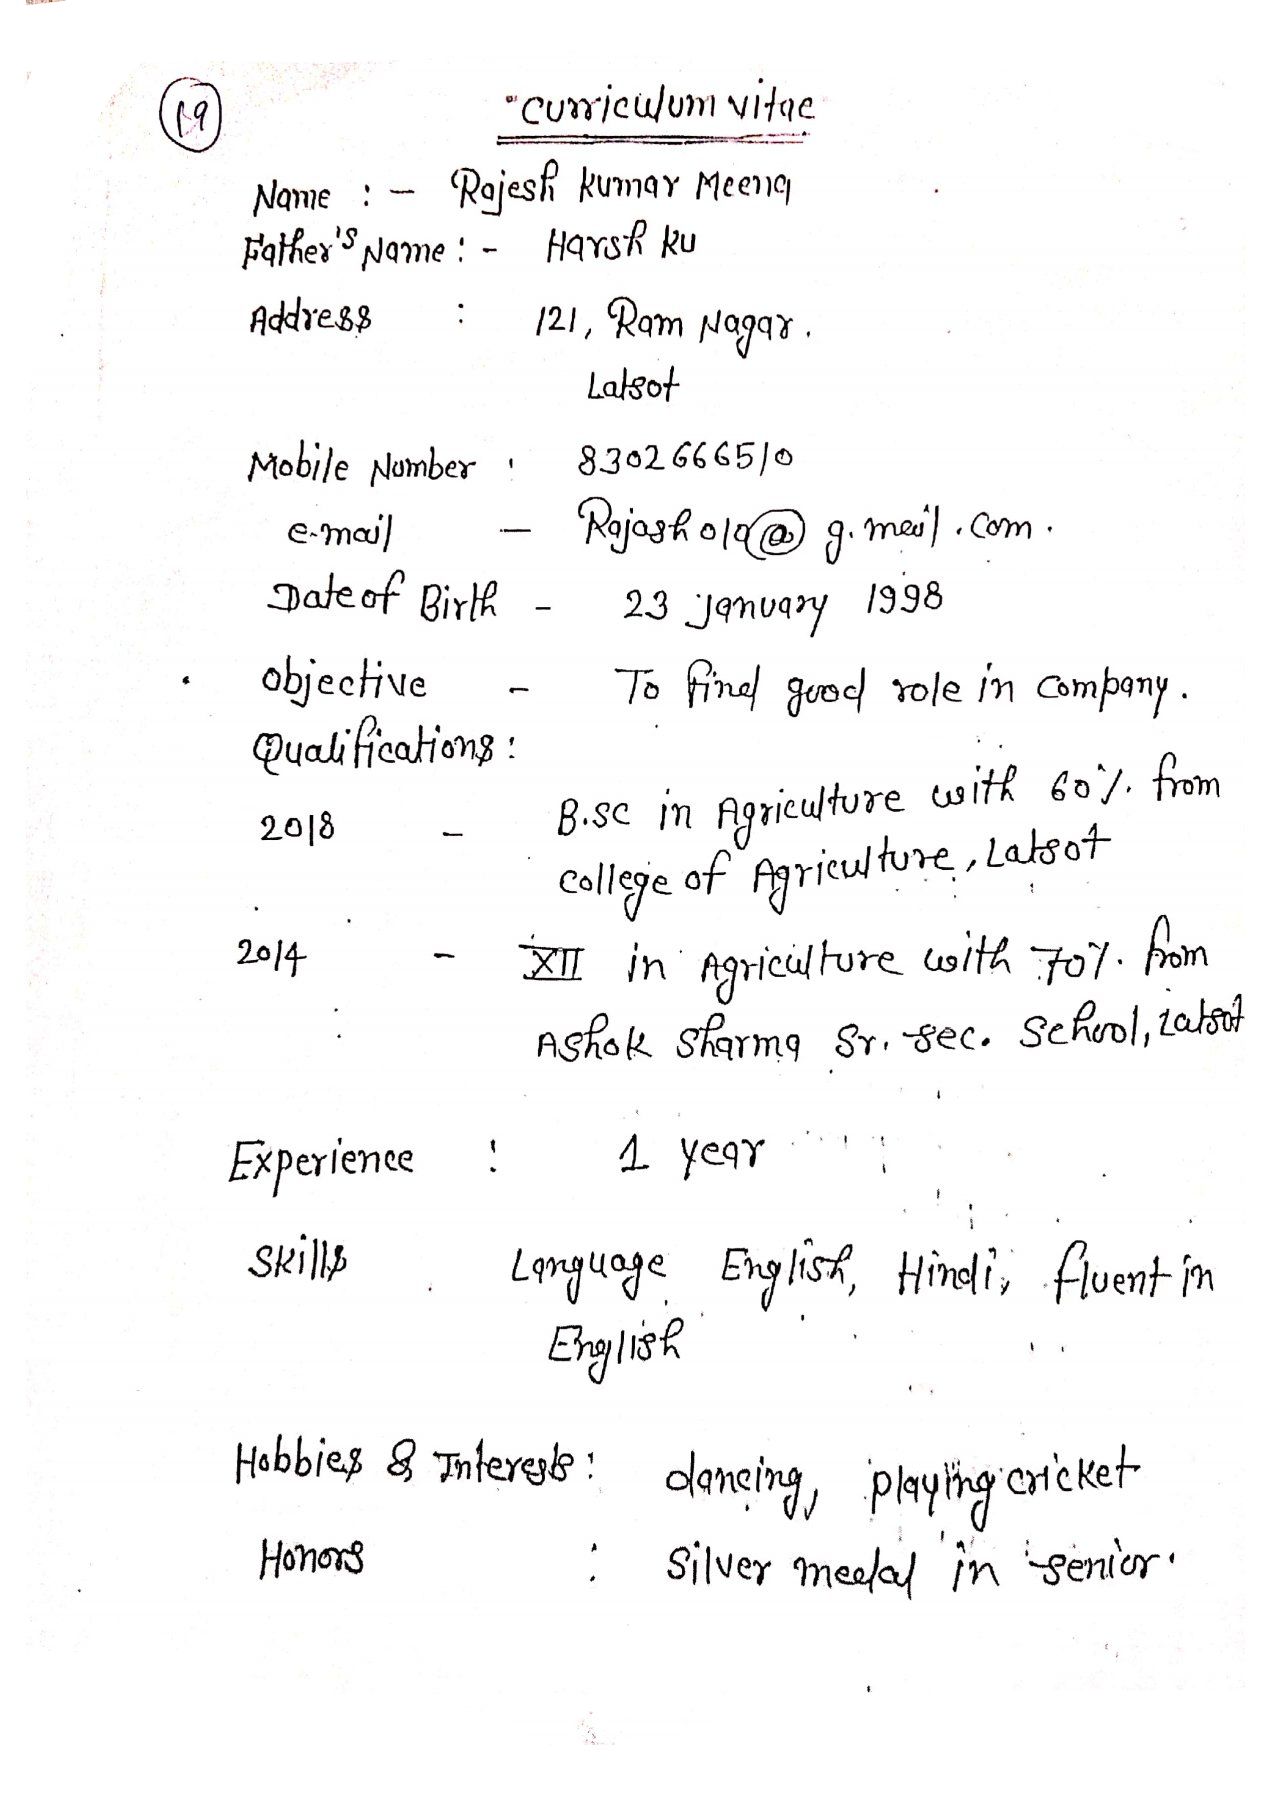 19
"Curriculum vitae
Name :- Rajesh Kumar Meena
Father's Name :- Harsh Ku
Address : 121, Ram Nagar.
Lalsot
Mobile Number : 8302666510
e-mail - Rajash01a@g.mail.com.
Date of Birth - 23 january 1998
objective - To find good role in company.
Qualifications :
2018 - B.sc in Agriculture with 60%. from
college of Agriculture, Lalsot
2014 - XII in Agriculture with 70%. from
Ashok Sharma Sr. sec. School, Lalsot
Experience : 1 year
Skills Language English, Hindi, fluent in
English
Hobbies & Interests : dancing, playing cricket
Honors : Silver medal in senior.